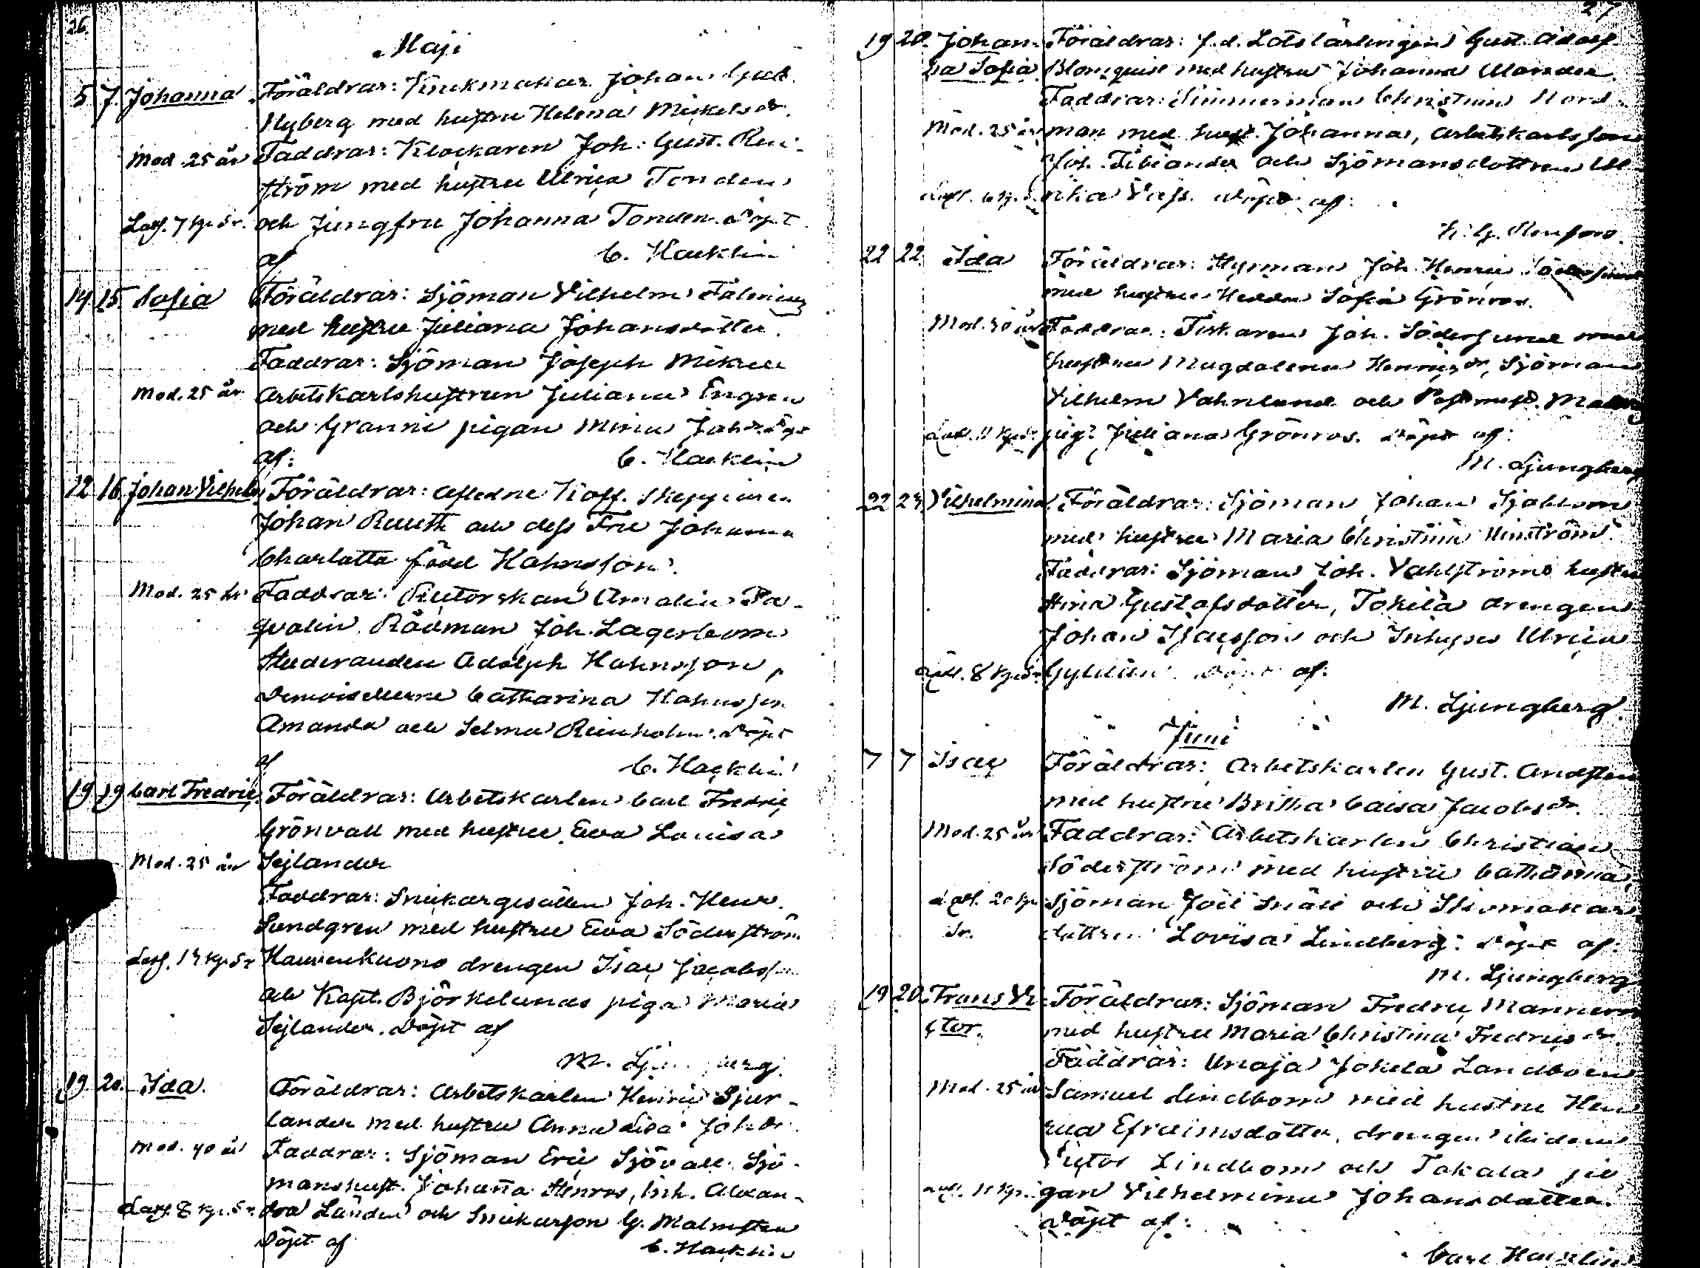 26.
Maji
5 7. Johanna Föräldrar: Snickmakar Johan Gust.
Nyberg med hustru Helena Mickelsdr.
Mod. 25 år Faddrar: Klockaren Joh. Gust. Ren-
ström med hustru Ulrica Tonden
Lars. 7 kp. Sr. och Jungfru Johanna Tonden. Döpt
af C. Hacklin
14 15 Sofia Föräldrar: Sjöman Vilhelm Falenius
med hustru Juliana Johansdotter.
Faddrar: Sjöman Joseph Mikael
Mod. 25 år Arbetskarlshustrun Juliana Engren
och Granni pigan Mina Johsdr. Döpt
af: C. Hacklin
12 16 Johan Vilhelm Föräldrar: Afledne Koff. Skepparen
Johan Reuth och dess Fru Johanna
Charlotta född Hahnsson.
Mod. 25 år Faddrar: Rectorskan Amalia Pa-
qvalin, Rådman Joh. Lagerbom
Studeranden Adolph Hahnsson,
Demoisellerne Catharina Hahnsson
Amanda och Selma Reinholm. Döpt
af C. Hacklin
19 19 Carl Fredric Föräldrar: Arbetskarlen Carl Fredric
Grönvall med hustru Eva Lovisa
Mod. 25 år Sejlander
Faddrar: Snickargesällen Joh. Henr.
Sundgren med hustru Eva Söderström
Hauvenkuono drengen Isac Jacobsson
och Kapt. Björkelunds piga Maria
Sejlander. Döpt af
M. Ljungberg
19 20. Ida. Föräldrar: Arbetskarlen Henric Sjur-
lander med hustru Anna Lisa Johsdr.
Mod. 40 år Faddrar: Sjöman Eric Sjövall, Sjö-
manshust. Johanna Stenros, Inh. Alexan-
Lars. 8 kp. Sr. dra Landen och Snickarson G. Malmsten
Döpt af C. Hacklin
27
19 20. Johan- Föräldrar: f.d. Lotslärlingen Gust. Adolf
na Sofia Blomquist med hustru Johanna Elander
Faddrar: Timmerman Christian Nord-
Mod. 25 år man med hust. Johanna, Arbetskarlsson
Joh. Sibiander och Sjömansdottren Ul-
rika Viss. Döpt af:
22 22 Ida Föräldrar: Styrman Joh. Henric Södersund
med hustru Hedda Sofia Grönros.
Mod. 30 år Faddrar: Fiskaren Joh. Södersund med
hustru Magdalena Henricsdr, Sjöman
Vilhelm Vahnlund och
pig. Juliana Grönros. Döpt af:
M. Ljungberg
22 24 Vilhelmina Föräldrar: Sjöman Johan Sjöblom
med hustru Maria Christina Winström.
Faddrar: Sjöman Joh. Vahlströms hustru
Stina Gustafsdotter, Tokila drengen
Johan Isacsson och Inhyses Ulrica
Gyldén. Döpt af:
M. Ljungberg
Juni
7 7 Isac Föräldrar: Arbetskarlen Gust. Andsten
med hustru Britha Caisa Jacobsdr.
Mod. 25 år Faddrar: Arbetskarlen Christian
Söderström med hustru Catharina,
Sjöman Joel Snäll och Skomakar
dottren Lovisa Lindberg. Döpt af:
M. Ljungberg
19 20. Frans Vi- Föräldrar: Sjöman Fredric Mannerm
ctor. med hustru Maria Christina Fredricsdr
Faddrar: Unaja Jokela Landboen
Mod. 25 år Samuel Lindbom med hustru Hen
rica Efraimsdotter, drengen ibidem
Victor Lindbom och Takala pi-
gan Vilhelmina Johansdotter.
Döpt af:
Carl Hacklin